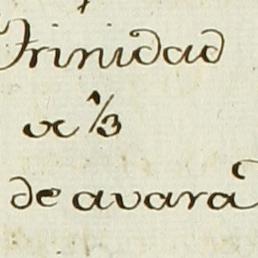 Trinidad
a 1/3
de avara